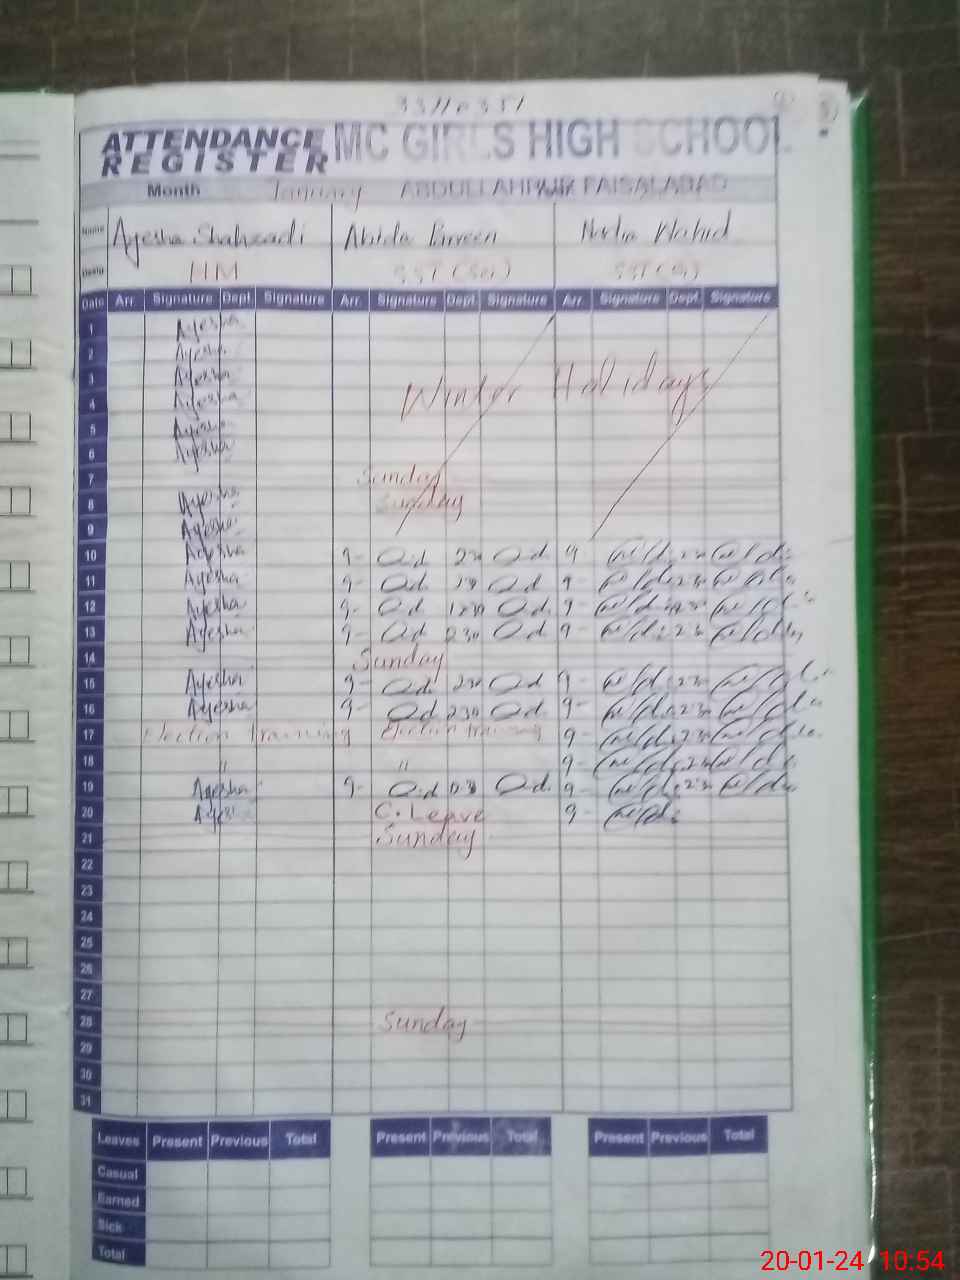 33110351
ATTENDANCE REGISTER MC GIRLS HIGH SCHOOL
Month January ABDULLAHPUR FAISALABAD
Name Ayesha Shahzadi Abida Parveen Nadia Wahid
HM SST (Sci)
Date Arr. Signature Dept. Signature Arr. Signature Dept. Signature Arr. Signature Dept. Signature
1 Ayesha
2 Ayesha
3 Ayesha Winter Holidays
4 Ayesha
5 Ayesha
6 Ayesha
7 Sunday
8 Ayesha Sunday
9 Ayesha
10 Ayesha 9- 230 9
11 Ayesha 9- 9-
12 Ayesha 9- 9-
13 Ayesha 9- 230 9-
14 Sunday
15 Ayesha 9- 230 9-
16 Ayesha 9- 230 9-
17 Election Training Election training 9-
18 " " 9-
19 Ayesha 9- 9-
20 Ayesha C. Leave 9-
21 Sunday
22
23
24
25
26
27
28 Sunday
29
30
31
Leaves Present Previous Total Present Previous Total Present Previous Total
Casual
Earned
Sick
Total
20-01-24 10:54